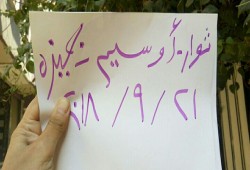 ثوار أوسيم بجيزة
٢٠١٨ / ٩ / ٢١